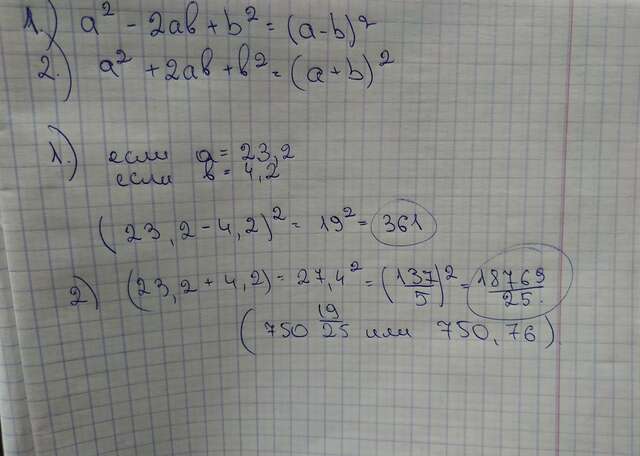 1.) a² - 2ab + b² = (a-b)²
2.) a² + 2ab + b² = (a+b)²
1.) если a = 23,2
если b = 4,2
(23,2 - 4,2)² = 19² = 361
2) (23,2 + 4,2) = 27,4² = (137/5)² = 18769/25.
(750 19/25 или 750,76).